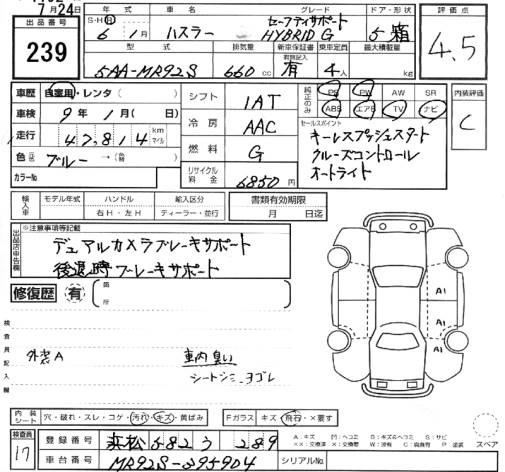 7月24日
出品番号
239
年式 車名 グレード ドア・形状
S・H・R 6年 1月 ハスラー セーフティサポート HYBRID G 5 箱
評価点
4.5
型式 排気量 新車保証書 乗車定員 最大積載量
有無記入
5AA-MR92S 660cc 有 4人 kg
車歴 自家用・レンタ( )
車検 9年 1月( 日)
走行 47,814 km マイル
色(元色) ブルー →(色替)
カラーNo.
シフト 1AT
冷房 AAC
燃料 G
リサイクル料金 6850円
純正のみ
PS PW AW SR
ABS エアB TV ナビ
内装評価
C
セールスポイント
キーレスプッシュスタート
クルーズコントロール
オートライト
輸入車 モデル年式 ハンドル 輸入区分
右H・左H ディーラー・並行
書類有効期限
月 日迄
出品店申告欄
※注意事項等記載
デュアルカメラブレーキサポート
後退時ブレーキサポート
修復歴 有 箇所
検査員記入欄
外装A
車内臭い
シートシミ・ヨゴレ
A1
A1
A1
内装シート 穴・破れ・スレ・コゲ・汚れ・キズ・黄ばみ
Fガラス キズ・飛石・×要す
検査員
17
登録番号 浜松 582 う 289
車台番号 MR92S-395904
シリアルNo.
A:キズ U:ヘコミ B:キズ&ヘコミ S:サビ
XX:交換済 X:要交換 W:波有 C:腐食有 P:塗装
スペア